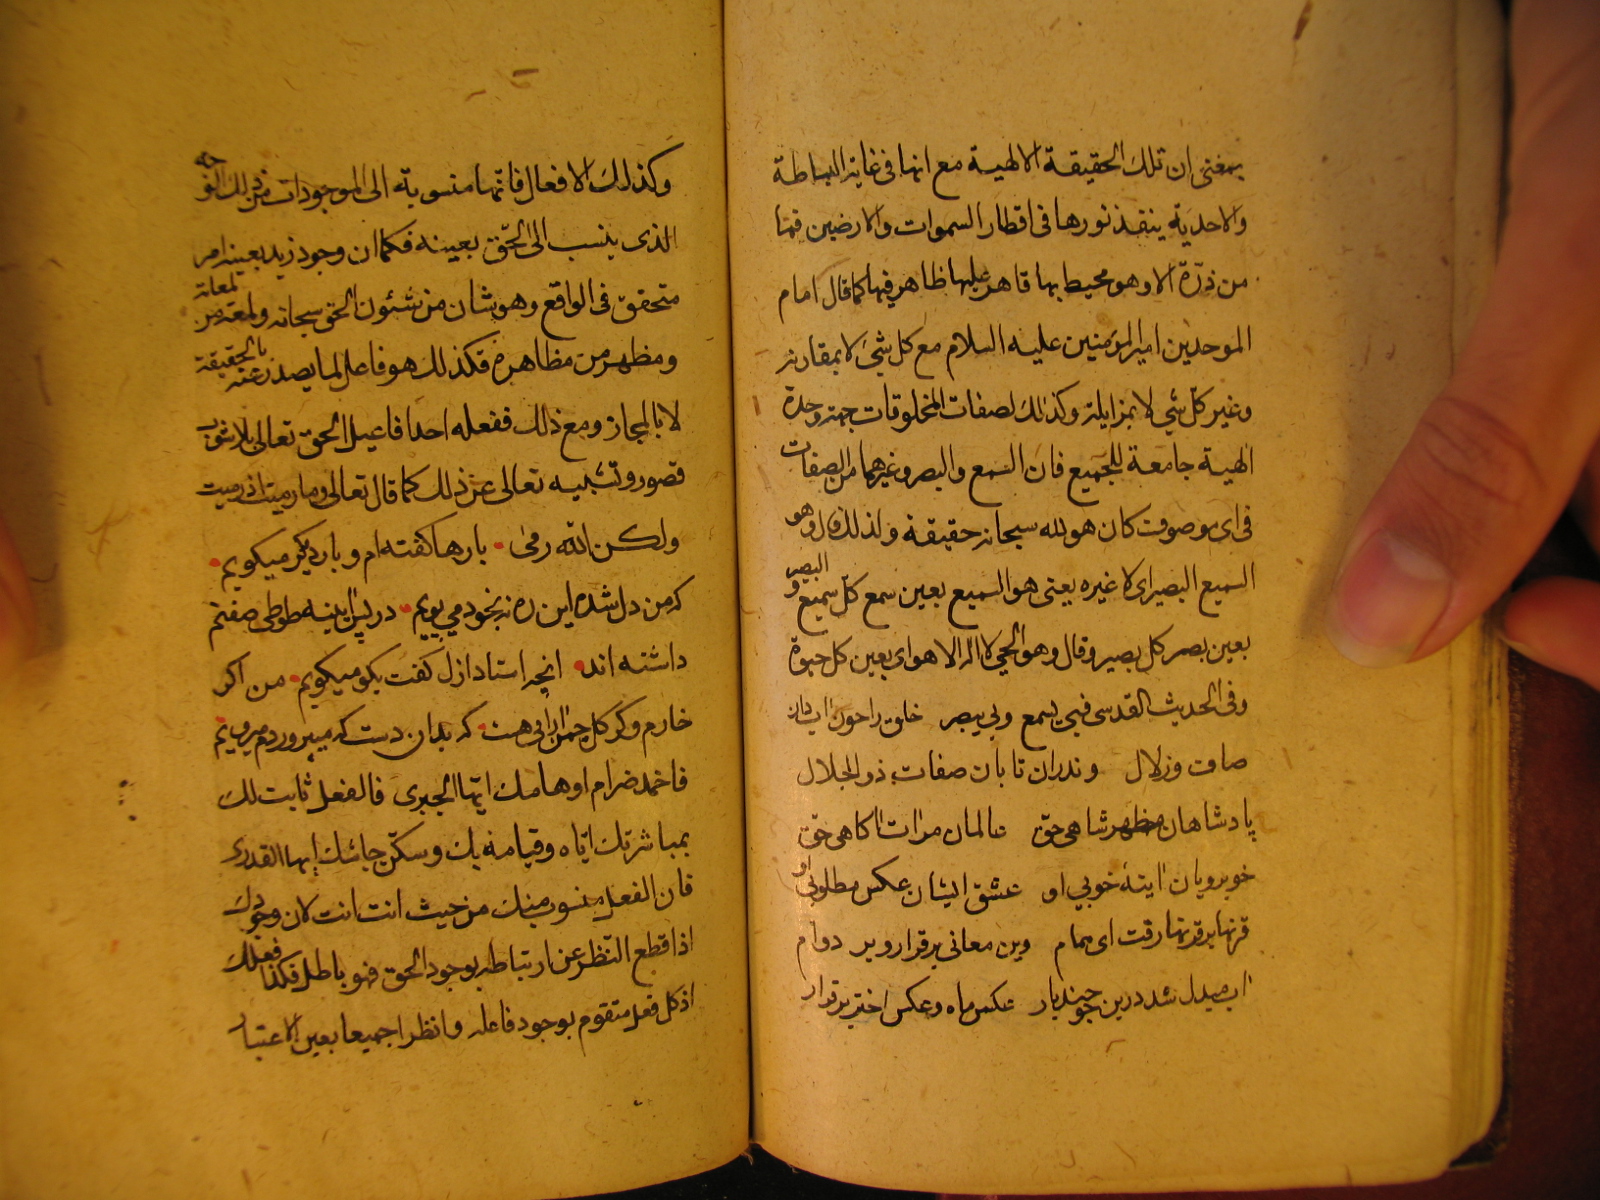 بمعنی ان تلك الحقیقة الالهیة مع انها فی غایة البساطة
والاحدیة ینفذ نورها فی اقطار السموات والارضین فما
من ذرّة الا وهو محیط بها قاهر علیها ظاهر فیها كما قال امام
الموحدین امیر المؤمنین علیه السلام مع كل شیء لا بمقارنة
وغیر كل شی لا بمزایلة وكذلك لصفات المخلوقات جهة وحدة
الهیة جامعة للجمیع فان السمع والبصر وغیرهما من الصفات
فی ای موصوف كان هو لله سبحانه حقیقة ولذلك قال وهو
السمیع البصیر ای لا غیره یعنی هو السمیع بعین سمع كل سمیع والبصیر
بعین بصر كل بصیر وقال وهو الحی لا اله الا هو ای بعین كل حیوة
وفی الحدیث القدسی فبی یسمع وبی یبصر خلق را چون اب دان
صاف وزلال وندران تابان صفات ذو الجلال
پادشاهان مظهر شاهی حق عالمان مرات اكاهی حق
خوبرویان اینهٔ خوبی او عشق ایشان عكس مطلوبی او
قرنها بر قرنها رفت ای همام وین معانی برقرار و بر دوام
اب مبدل شد درین جو چند بار عكس ماه و عكس اختر برقرار
وكذلك الافعال فانها منسوبة الی الموجودات من ذلك الوجه
الذی ینسب الی الحق بعینه فكما ان وجود زید بعینه امر
متحقق فی الواقع وهو شان من شئون الحق سبحانه ولمعة من لمعاته
ومظهر من مظاهره فكذلك هو فاعل لما یصدر عنه بالحقیقة
لا بالمجاز ومع ذلك ففعله احد افاعیل الحق تعالی بلا شوب
قصور وتشبیه تعالی عن ذلك كما قال تعالی وما رمیت اذ رمیت
ولكن الله رمی بارها كفته ام و بار دیكر میكویم
كه من دل شده این ره نه بخود می پویم در پس اینه طوطی صفتم
داشته اند انچه استاد ازل كفت بكو میكویم من اكر
خارم و كر كل چمن ارایی هست كه بدان دست كه میپروردم میرویم
فاخمد ضرام اوهامك ایها الجبری فالفعل ثابت لك
بمباشرتك ایاه وقیامه بك وسكّن جاشك ایها القدری
فان الفعل منسوب منك من حیث انت انت لان وجودك
اذا قطع النظر عن ارتباطه بوجود الحق فهو باطل فكذا فعلك
اذ كل فعل متقوم بوجود فاعله وانظرا جمیعا بعین الاعتبار